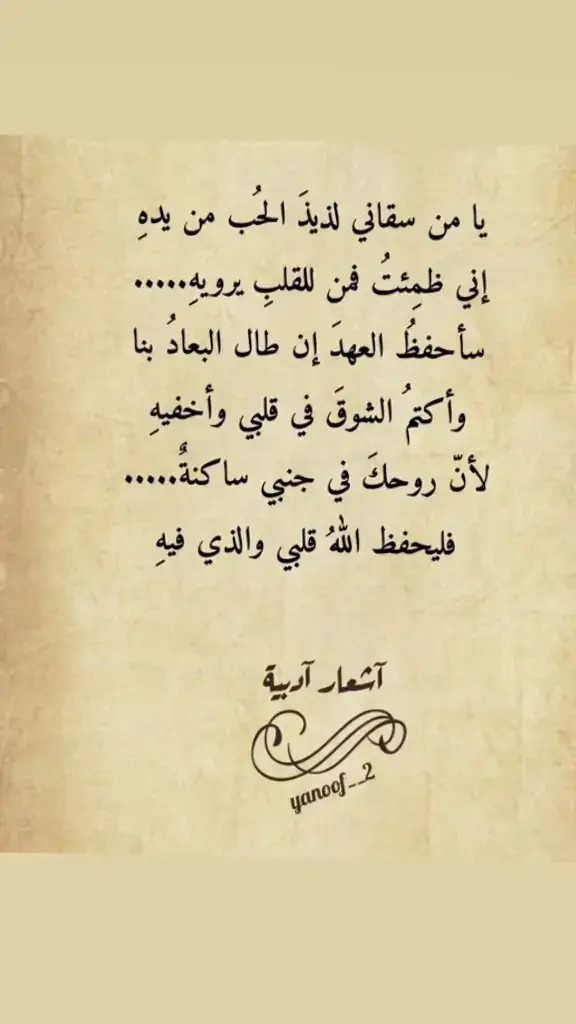 يا من سقاني لذيذَ الحُب من يدهِ
إني ظمِئتُ فمن للقلبِ يرويهِ.....
سأحفظُ العهدَ إن طال البعادُ بنا
وأكتمُ الشوقَ في قلبي وأخفيهِ
لأنّ روحكَ في جنبي ساكنةٌ.....
فليحفظ اللهُ قلبي والذي فيهِ
آشعار آدبية
yanoof__2